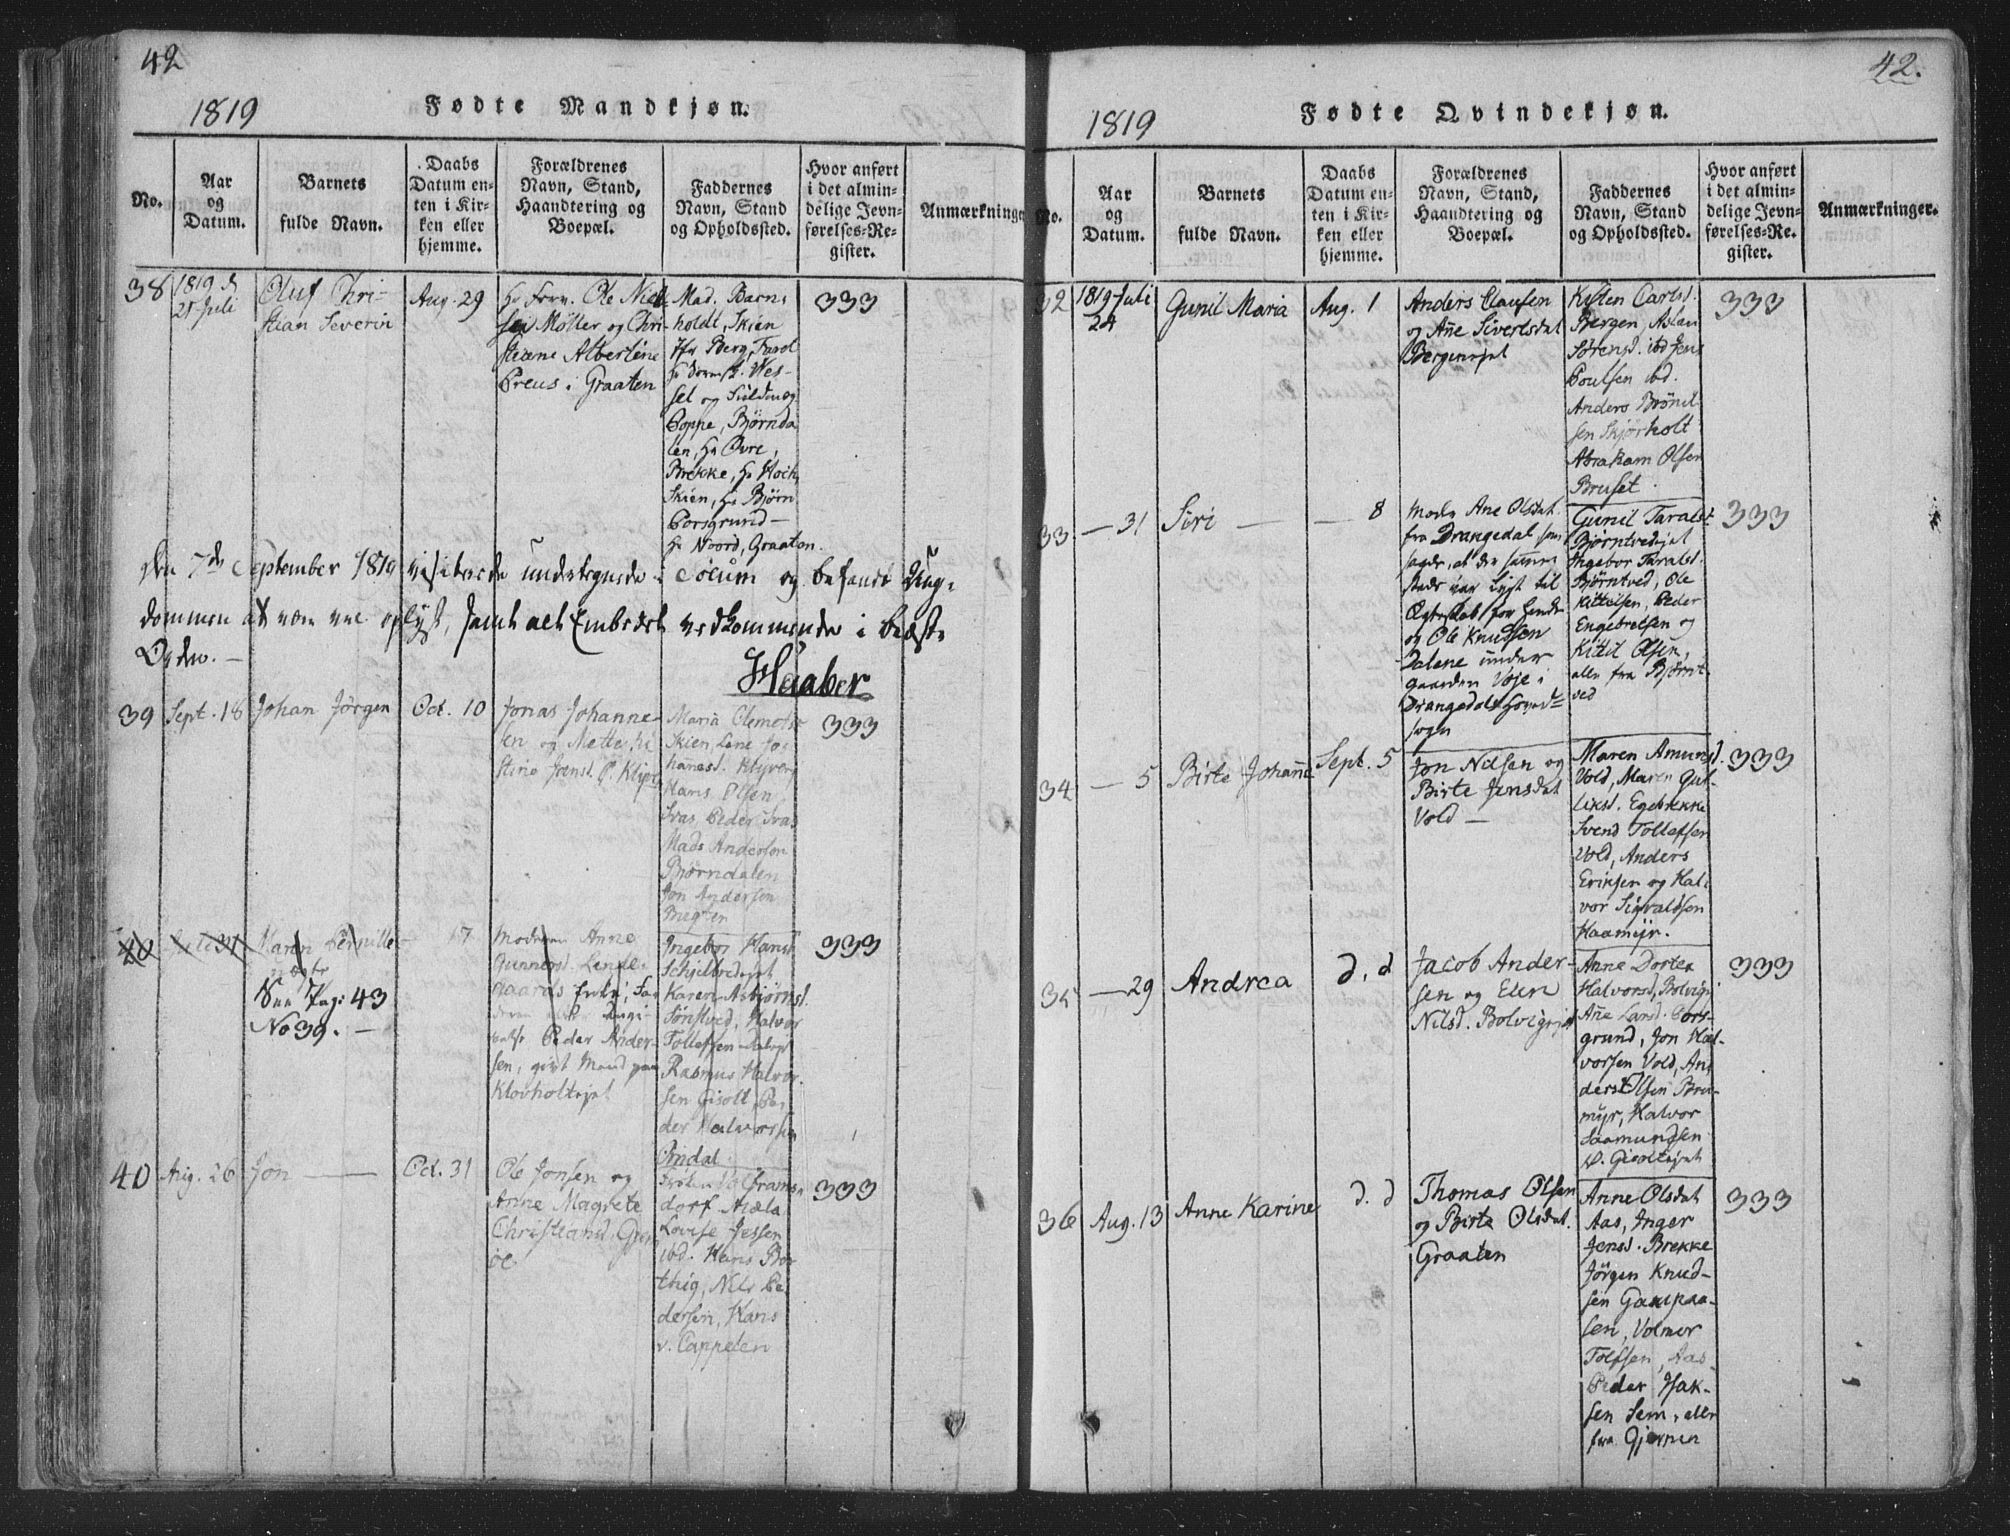 42
1819
Fødte Mandkjøn.
No.
Aar
og
Datum.
Barnets
fulde Navn.
Daabs
Datum en-
ten i Kir-
ken eller
hjemme.
Forældrenes
Navn, Stand,
Haandtering og
Boepæl.
Faddernes
Navn, Stand
og Opholdssted.
Hvor anført
i det almin-
delige Jevn-
førelses-Re-
gister.
Anmærkninger
38
1819 d
21 Juli
Oluf Chri-
stian Severin
Aug. 29
Ole Niel-
sen Møller og Chri-
stiane Albertine
Preus i Graaten
Mad. Barn-
holdt, Skien
Berg, Tarol
Wes-
sel og
Poppe, Bjørnda
len, Hr Øvre,
Brekke, Hr Hoch
Skien, Hr Bjørn
Porsgrund —
Hr Noord, Graaten.
333
Den 7de September 1819 visiterede undertegnede i Solum og befandt Ung-
dommen at være vel oplyst, samt alt Embedet vedkommende i bedste
Orden. —
Haaber
39
Sept. 18
Johan Jörgen
Oct. 10
Jonas Johanne-
sen og Mette
stine Jensd.
Maria
Skien, Lene Jo-
hannesd. Klyver
Hans Olsen
Peder
Mads Andersen
Bjørndalen
Jon Andersen
333
40
Juli 31
Maren Pernille
uægte
See Pag: 43
No 39. —
17
Moderen Anne
Gunnersd.
Peder Ander-
sen, givt Mand paa
Klovholtejet
Ingebor Hansd
Karen Asbjørnsd.
Halvor
Tollefsen
Rasmus Halvor-
sen Gisolt, Pe-
der Halvorsen
333
40
Aug. 26
Jon — —
Oct. 31
Ole Jonsen og
Anne Magrete
Christiansd.
Lovise Jessen
ibd. Hans
Nils Pe-
dersen, Hans
v. Cappelen
333
42.
1819
Fødte Qvindekjøn.
No.
Aar
og
Datum.
Barnets
fulde Navn.
Daabs
Datum en-
ten i Kir-
ken eller
hjemme.
Forældrenes
Navn, Stand,
Haandtering og
Boepæl.
Faddernes
Navn, Stand
og Opholdssted.
Hvor anført
i det almin-
delige Jevn-
førelses-Re-
gister.
Anmærkninger.
32
1819 Juli
24
Gunil Maria
Aug. 1
Anders Clausen
og Ane Sivertsdat
Bergenejet
Kisten Carlsd.
Bergen, Aslau
Sörensd. ibd Jens
Poulsen ibd.
Anders Brönil-
sen Skjørholt
Abraham Olsen
Bruset.
333
33
— 31
Siri —
— 8
Mode Ane Olsdat.
fra Drangedal, som
sagde, at der samme
steds var lyst til
Ægteskab for hende
og Ole Knudsen
Dalene under
gaarden Voje i
Drangedals Hoved-
sogn
Gunil Taralsd.
Bjørntvedejet
Ingebor Taralsd.
Bjørntved, Ole
Kittilsen, Peder
Engebretsen og
Kittil Olsen,
alle fra Bjørnt-
ved
333
34
— 5
Birte Johanne
Sept. 5
Jon Nilsen og
Birte Jensdat
Vold —
Maren Amunsd.
Vold, Maren Gul-
liksd. Egebrekke
Svend Tollefsen
Vold, Anders
Eriksen og Hal-
vor Sigvaldsen
Haamyr.
333
35
— 29
Andrea
d. d
Jacob Ander-
sen og Elen
Nilsd. Bolvigejet
Anne Dortea
Halvorsd, Bolvig,
Ane Larsd. Pors-
grund, Jon Hal-
vorsen Vold, An-
ders Olsen Bre-
myr, Halvor
Saamundsen
Gisoltejet
333
36
Aug. 13
Anne Karine
d. d
Thomas Olsen
og Birte Olsdat.
Graaten
Anne Olsdat
Aas, Inger
Jensd. Brekke
Jørgen Knud-
sen Gampaa-
sen, Volmer
Tolfsen, Aas
Peder Isak-
sen Sem, alle
fra Gjerpen
333